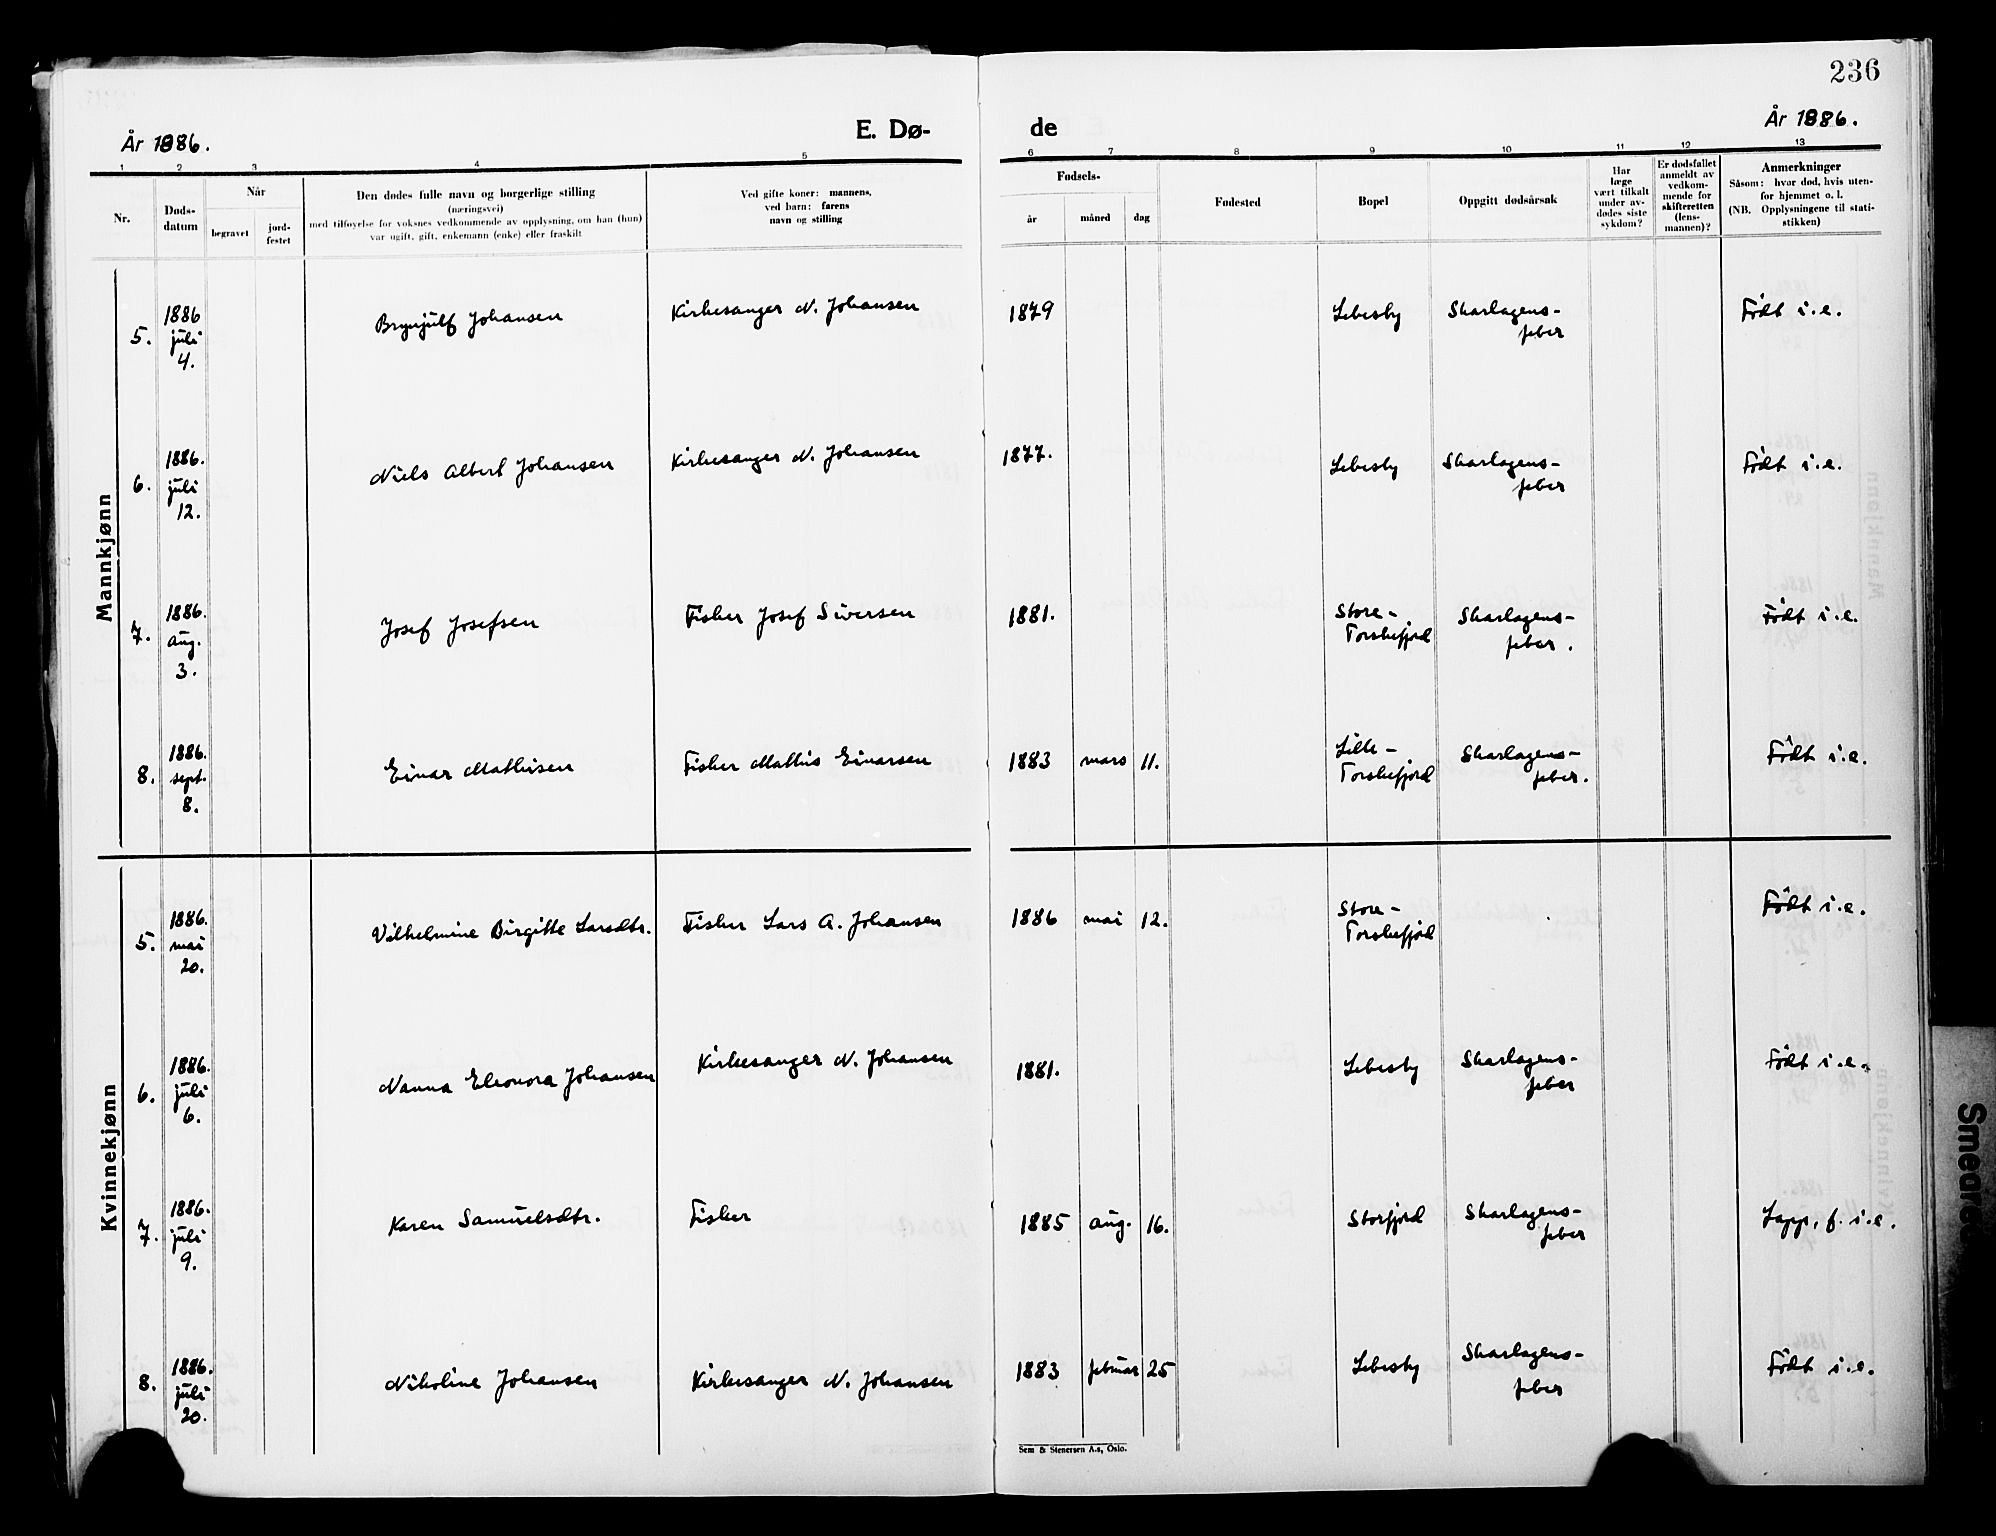 236
År 1886.
E. Dø-
de
År 1886.
1 2 3 4 5 6 7 8 9 10 11 12 13
Nr.
Døds-
datum
Når
begravet
jord-
festet
Den dødes fulle navn og borgerlige stilling
(næringsvei)
med tilføyelse for voksnes vedkommende av opplysning, om han (hun)
var ugift, gift, enkemann (enke) eller fraskilt
Ved gifte koner: mannens,
ved barn: farens
navn og stilling
Fødsels-
år
måned
dag
Fødested
Bopel
Oppgitt dødsårsak
Har
læge
vært tilkalt
under av-
dødes siste
sykdom?
Er dødsfallet
anmeldt av
vedkom-
mende for
skifteretten
(lens-
mannen)?
Anmerkninger
Såsom: hvor død, hvis uten-
for hjemmet o. l.
(NB. Opplysningene til stati-
stikken)
Mannkjønn
5.
1886
juli
4.
Brynjulf Johansen
Kirkesanger N. Johansen
1879
Lebesby
Skarlagens-
feber
Født i.e.
6.
1886.
juli
12.
Niels Albert Johansen
Kirkesanger N. Johansen
1877.
Lebesby
Skarlagens-
feber
Født i.e.
7.
1886.
aug.
3.
Josef Josefsen
Fisker Josef Siversen
1881.
Store-
Torskefjord
Skarlagens-
feber.
Født i.e.
8.
1886.
sept.
8.
Einar Mathisen
Fisker Mathis Einarsen
1883 mars 11.
Lille-
Torskefjord
Skarlagens-
feber.
Født i.e.
Kvinnekjønn
5.
1886.
mai
20.
Vilhelmine Birgitte Larsdtr.
Fisker Lars A. Johansen
1886 mai 12.
Store-
Torskefjord
Født i.e.
6.
1886.
juli
6.
Nanna Eleonora Johansen
Kirkesanger N. Johansen
1881.
Lebesby
Skarlagens-
feber
Født i.e.
7.
1886.
juli
9.
Karen Samuelsdtr.
Fisker
1885 aug. 16.
Storfjord
Skarlagens-
feber
Lapp, f. i.e.
8.
1886.
juli
20.
Nikoline Johansen
Kirkesanger N. Johansen
1883 februar 25
Lebesby
Skarlagens-
feber
Født i.e.
Sem & Stenersen A.s, Oslo.